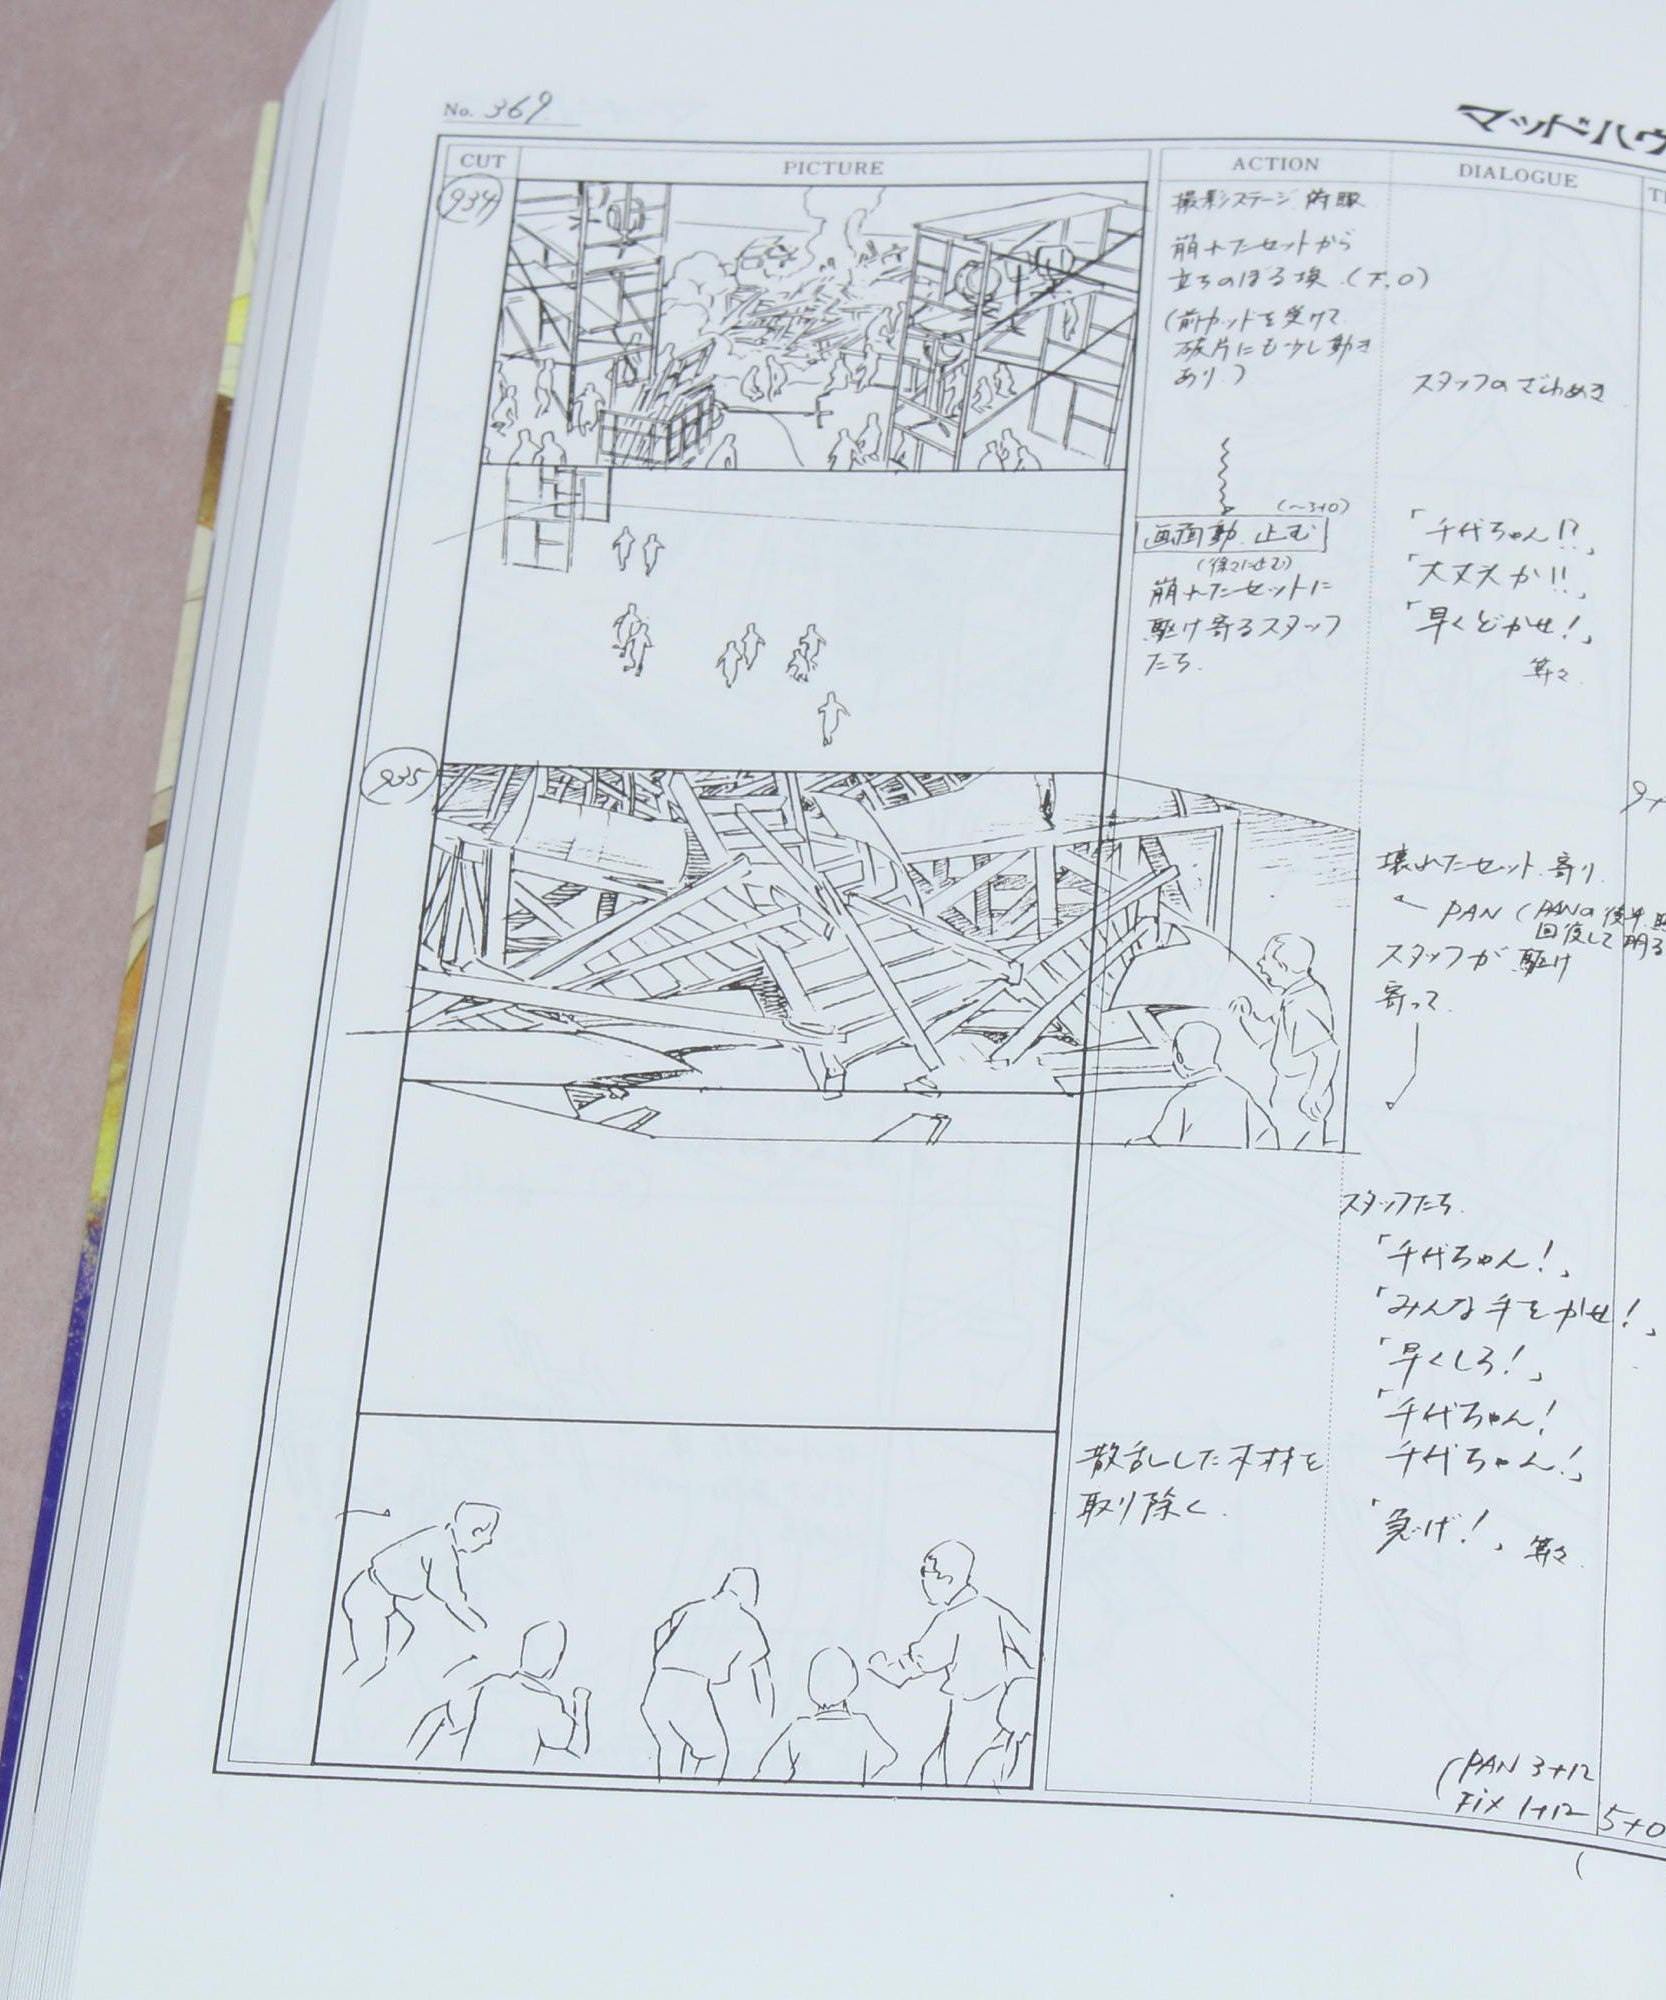 No. 369
マッドハウ
CUT
PICTURE
ACTION
DIALOGUE
934
撮影ステージ 俯瞰
崩れたセットから
立ちのぼる埃.(T.O)
(前カットを受けて
破片にも少し動き
あり.)
スタッフのざわめき
(〜3+0)
画面動 止む
(徐々に止む)
崩れたセットに
駆け寄るスタッフ
たち.
「千代ちゃん!?」
「大丈夫か!!」
「早くどかせ!」
等々.
935
9+
壊れたセット.寄り.
← PAN (PANの後半
回復して明る
スタッフが駆け
寄って.
スタッフたち.
「千代ちゃん!」
「みんな手をかせ!」
「早くしろ!」
「千代ちゃん!
千代ちゃん!」
「急げ!」 等々.
散乱した木材を
取り除く.
(PAN 3+12
Fix 1+12
5+0